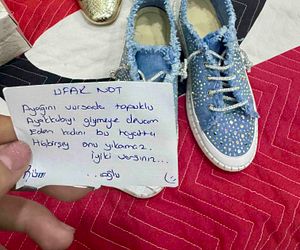 UFAK NOT
Ayağını vursada topuklu
Ayakkabıyı giymeye devam
Eden kadını bu hayatta
Hiçbirşey onu yıkamaz.
iyiki varsınız...
..oğlu